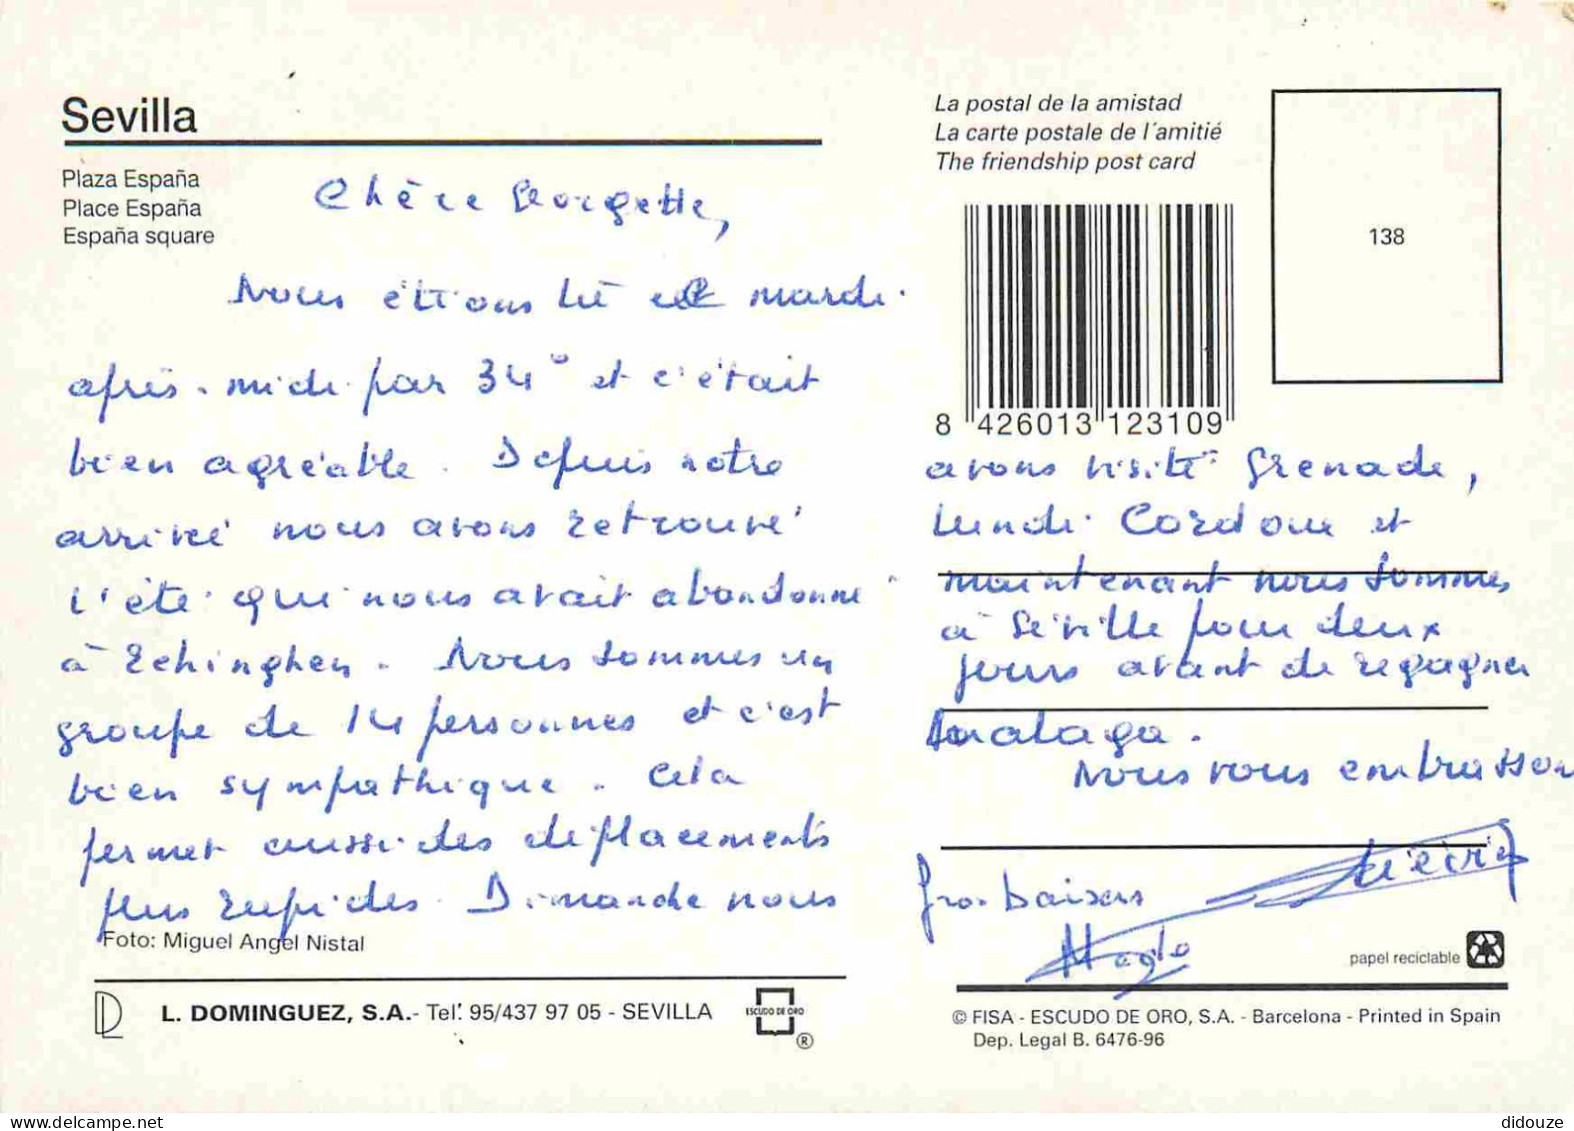 Sevilla
Plaza España
Place España
España square
Chère Georgette,
Nous étions là ce mardi
après-midi par 34° et c'était
bien agréable. Depuis notre
arrivée nous avons retrouvé
l'été qui nous avait abandonné
à Echinghen. Nous sommes un
groupe de 14 personnes et c'est
bien sympathique. Cela
permet aussi des déplacements
plus rapides. Dimanche nous
Foto: Miguel Angel Nistal
L. DOMINGUEZ, S.A.- Tel. 95/437 97 05 - SEVILLA
ESCUDO DE ORO
®
La postal de la amistad
La carte postale de l'amitié
The friendship post card
138
8 426013 123109
avons visité Grenade,
lundi Cordoue et
maintenant nous sommes
à Séville pour deux
jours avant de regagner
Malaga.
Nous vous embrassons
Gros baisers
papel reciclable
© FISA - ESCUDO DE ORO, S.A. - Barcelona - Printed in Spain
Dep. Legal B. 6476-96
didouze